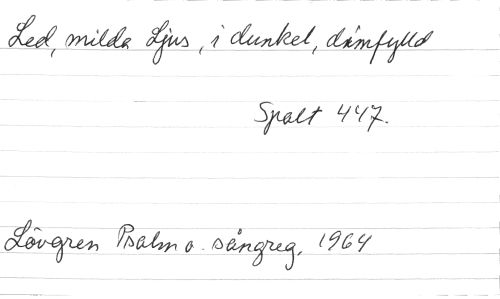 Led, milda Ljus, i dunkel, dimfylld
Spalt 447.
Lövgren Psalm o. sångreg. 1964